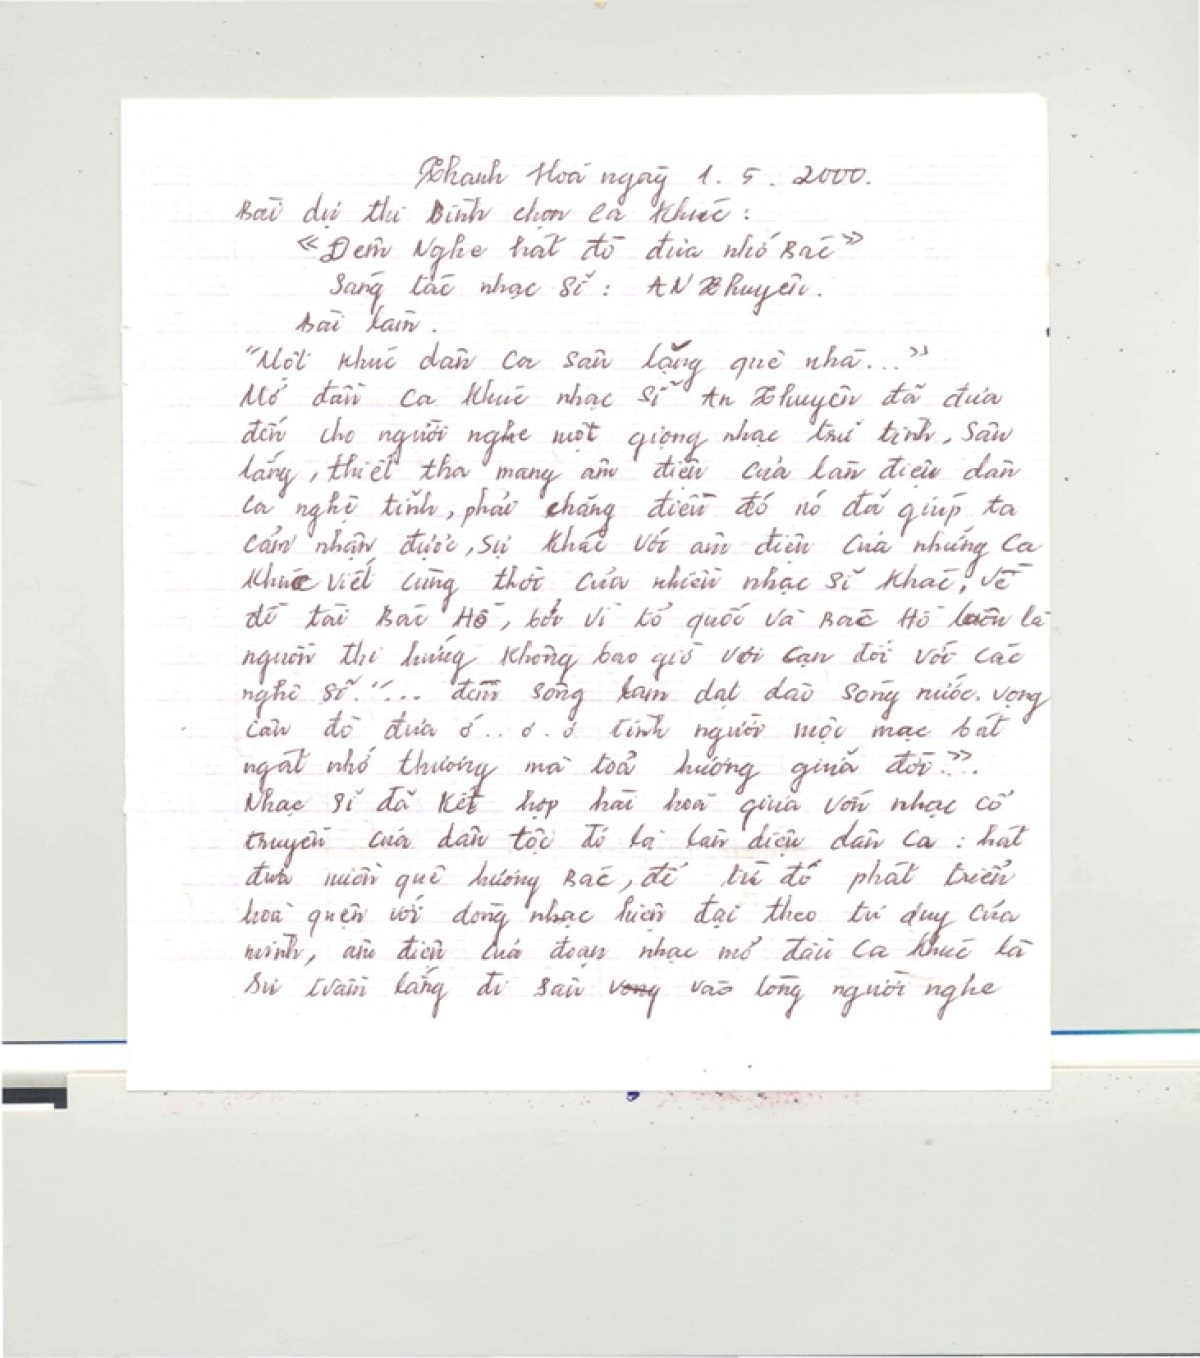 Thanh Hoá ngày 1.5.2000.
Bài dự thi Bình chọn ca khúc:
«Đêm Nghe hát đò đưa nhớ Bác»
Sáng tác nhạc sĩ: AN Thuyên.
Bài làm.
"Một khúc dân ca sâu lặng quê nhà..."
Mở đầu ca khúc nhạc sĩ An Thuyên đã đưa
đến cho người nghe một giọng nhạc trữ tình, sâu
lắng, thiết tha mang âm điệu của làn điệu dân
ca nghệ tĩnh, phải chăng điều đó nó đã giúp ta
cảm nhận được, sự khác với âm điệu của những ca
khúc viết cùng thời của nhiều nhạc sĩ khác, về
đề tài Bác Hồ, bởi vì tổ quốc và Bác Hồ luôn là
nguồn thi hứng không bao giờ vơi cạn đối với các
nghệ sĩ. "... đêm sông lam dạt dào sóng nước. vọng
câu đò đưa ớ.. ơ. ơ tình người mộc mạc bát
ngát nhớ thương mà toả hương giữa đời..».
Nhạc sĩ đã kết hợp hài hoà giữa vốn nhạc cổ
truyền của dân tộc đó là làn điệu dân ca: hát
đưa miền quê hương Bác, để từ đó phát triển
hoà quện với dòng nhạc hiện đại theo tư duy của
mình, âm điệu của đoạn nhạc mở đầu ca khúc là
sự trầm lắng đi sâu vào lòng người nghe